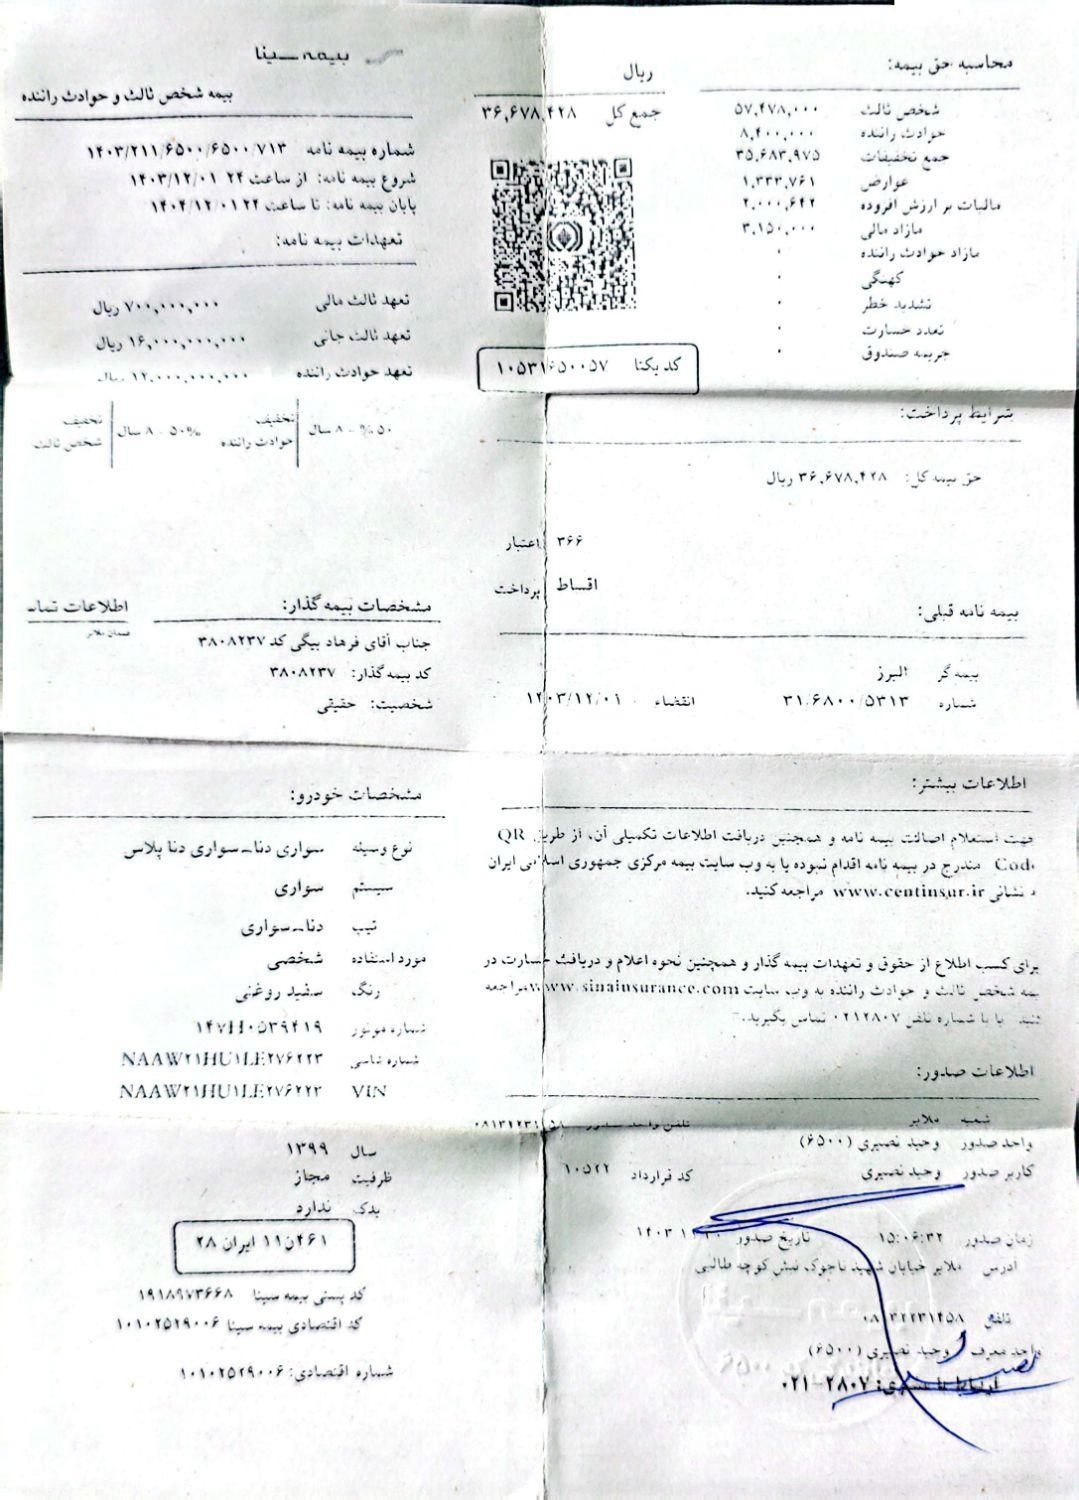 بیمه سینا
بیمه شخص ثالث و حوادث راننده
شماره بیمه نامه ۱۴۰۳/۲۱۱/۶۵۰۰/۶۵۰۰/۷۱۳
شروع بیمه نامه: از ساعت ۲۴ ۱۴۰۳/۱۲/۰۱
پایان بیمه نامه: تا ساعت ۲۴ ۱۴۰۴/۱۲/۰۱
تعهدات بیمه نامه:
تعهد ثالث مالی ۷۰۰,۰۰۰,۰۰۰ ریال
تعهد ثالث جانی ۱۶,۰۰۰,۰۰۰,۰۰۰ ریال
تعهد حوادث راننده ۱۲,۰۰۰,۰۰۰,۰۰۰ ریال
تخفیف حوادث راننده ۵۰% - ۸ سال
تخفیف شخص ثالث ۵۰% - ۸ سال
مشخصات بیمه گذار:
جناب آقای فرهاد بیگی کد ۳۸۰۸۲۳۷
کد بیمه گذار: ۳۸۰۸۲۳۷
شخصیت: حقیقی
اطلاعات تماس
مشخصات خودرو:
نوع وسیله سواری دنا-سواری دنا پلاس
سیستم سواری
تیپ دنا-سواری
مورد استفاده شخصی
رنگ سفید روغنی
شماره موتور ۱۴۷H۰۵۳۹۴۱۹
شماره شاسی NAAW۲۱HU۱LE۲۷۶۲۲۳
VIN NAAW۲۱HU۱LE۲۷۶۲۲۳
سال ۱۳۹۹
ظرفیت مجاز
یدک ندارد
۴۶۱ن۱۱ ایران ۲۸
کد پستی بیمه سینا ۱۹۱۸۹۷۳۶۶۸
کد اقتصادی بیمه سینا ۱۰۱۰۲۵۲۹۰۰۶
شماره اقتصادی: ۱۰۱۰۲۵۲۹۰۰۶
محاسبه حق بیمه:
شخص ثالث ۵۷,۴۷۸,۰۰۰
حوادث راننده ۸,۴۰۰,۰۰۰
جمع تخفیفات ۳۵,۶۸۳,۹۷۵
عوارض ۱,۳۳۳,۷۶۱
مالیات بر ارزش افزوده ۲,۰۰۰,۶۴۲
مازاد مالی ۳,۱۵۰,۰۰۰
مازاد حوادث راننده ۰
کهنگی ۰
تشدید خطر ۰
تعدد خسارت ۰
جریمه صندوق ۰
ریال
جمع کل ۳۶,۶۷۸,۴۲۸
کد یکتا ۱۰۵۳۱۶۵۰۰۵۷
شرایط پرداخت:
حق بیمه کل: ۳۶,۶۷۸,۴۲۸ ریال
۳۶۶ اعتبار
اقساط پرداخت
بیمه نامه قبلی:
بیمه گر البرز
شماره ۳۱/۶۸۰۰/۵۳۱۳ انقضاء ۱۴۰۳/۱۲/۰۱
اطلاعات بیشتر:
جهت استعلام اصالت بیمه نامه و همچنین دریافت اطلاعات تکمیلی آن، از طریق QR
Code مندرج در بیمه نامه اقدام نموده یا به وب سایت بیمه مرکزی جمهوری اسلامی ایران
به نشانی www.centinsur.ir مراجعه کنید.
برای کسب اطلاع از حقوق و تعهدات بیمه گذار و همچنین نحوه اعلام و دریافت خسارت در
بیمه شخص ثالث و حوادث راننده به وب سایت www.sinainsurance.com مراجعه
کنید یا با شماره تلفن ۰۲۱۲۸۰۷ تماس بگیرید.
اطلاعات صدور:
شعبه ملایر تلفن واحد صدور
واحد صدور وحید نصیری (۶۵۰۰)
کاربر صدور وحید نصیری کد قرارداد ۱۰۵۲۲
زمان صدور ۱۵:۰۶:۳۲ تاریخ صدور
آدرس ملایر خیابان شهید ناجوک نبش کوچه طالبی
تلفن ۰۸۱۳۲۲۳۱۴۵۸
واحد معرف وحید نصیری (۶۵۰۰)
ارتباط با مشتری: ۰۲۱-۲۸۰۷